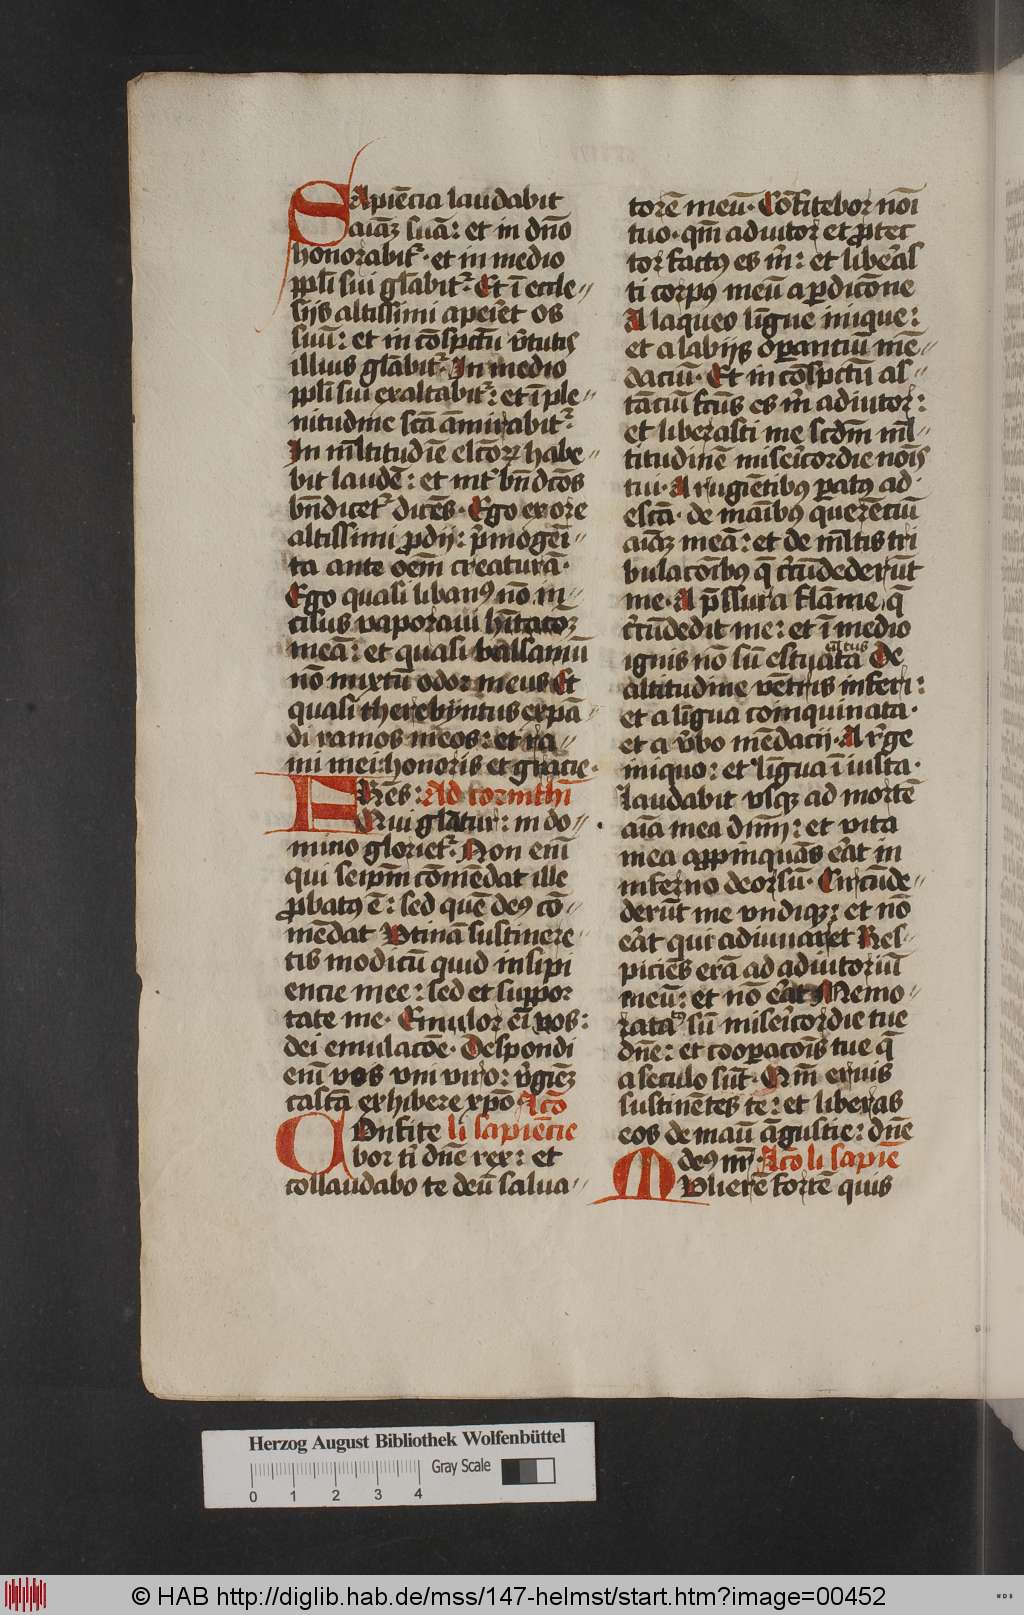 SApiēcia laudabit
aiāʒ suā: et in dn̄o
honorabitᷣ· et in medio
ppl̄i sui gl̄abitᷣ: Et ī eccle〃
sijs altissimi apeꝛ̉et os
suū: et in cōspc̄tu v̉tutis
illius gl̄abitᷣ· In medio
ppl̄i sui exaltabitᷣ: et ī ple〃
nitudine sc̄a am̄irabitᷣ:
In ml̄titudīe elc̄oꝝ habe〃
bit laudē: et int̉ bn̄dc̄os
bn̄dicetᷣ dicēs· Ego ex ore
altissimi ꝓdij: p̉mogēi〃
ta ante oēm creaturā·
Ego quasi libanꝰ nō in〃
cisus vaporaui hītacōʒ
meā: et quasi balsamū
nō mixtū odor meus Et
quasi therebyntus expā〃
di ramos meos: et ra〃
mi mei: honoris et gracie·
FRēs: Ad corinthī
Qui gl̄atur: in do〃
mino glorietᷣ· Non eīm
qui seip̄m cōmēdat ille
ꝓbatꝰ ē: sed quē deꝰ cō〃
mēdat Vtinā sustinere〃
tis modicū quid insipi
encie mee: sed et suppor
tate me· Emulor eī vos:
dei emulacōe· Despondi
enī vos vni viro: v̉gīeʒ
castā exhibere xp̄o· Lc̄o
COnfite li sapiēcie
bor ti dn̄e rex: et
collaudabo te deū salua〃
torē meū· Cōfitebor nōi
tuo· qm̄ adiutor et ꝓtec
tor factꝰ es m̉: et libeꝛ̉as
ti corpꝰ meū a ꝑdicōne
A laqueo līgue inique:
et a labijs oꝑantiū mē〃
daciū· Et in cōspc̄tu as〃
tāciū fc̄us es m̉ adiutor:
et liberasti me scd̄m ml̄〃
titudinē miseꝛ̉cordie nōis
tui· A rugiētibꝰ ꝑatꝰ ad
escā· de māibꝰ querētiū
aiāʒ meā: et de ml̄tis tri
bulacōibꝰ q̄ c̉cūdederūt
me· A p̄ssura flāme q̄
c̉cūdedit me: et ī medio
ignis nō sū estuata De
altus
altitudine vētris inferi:
et a līgua coinquinata·
et a v̉bo mēdacij· A r̉ge
iniquo: et līgua ī iusta·
laudabit vsqʒ ad mortē
aīa mea dnm̄: et vita
mea appīnquās eꝛ̉at in
inferno deorsū· Circūde〃
derūt me vndiqʒ: et nō
eꝛ̉at qui adiuuaret Res〃
piciēs erā ad adiutoriū
meū: et nō eꝛ̉at Memo〃
ratꝰ sū miseꝛ̉cordie tue
dn̄e: et cooꝑacōis tue q̄
a seculo sūt· Qm̄ eruis
sustinētes te: et liberas
eos de maū āgustie: dn̄e
deꝰ nr̄· Lc̄o li sapiē
MVlierē fortē quis
Herzog August Bibliothek Wolfenbüttel
Gray Scale
0 1 2 3 4
© HAB http://diglib.hab.de/mss/147-helmst/start.htm?image=00452